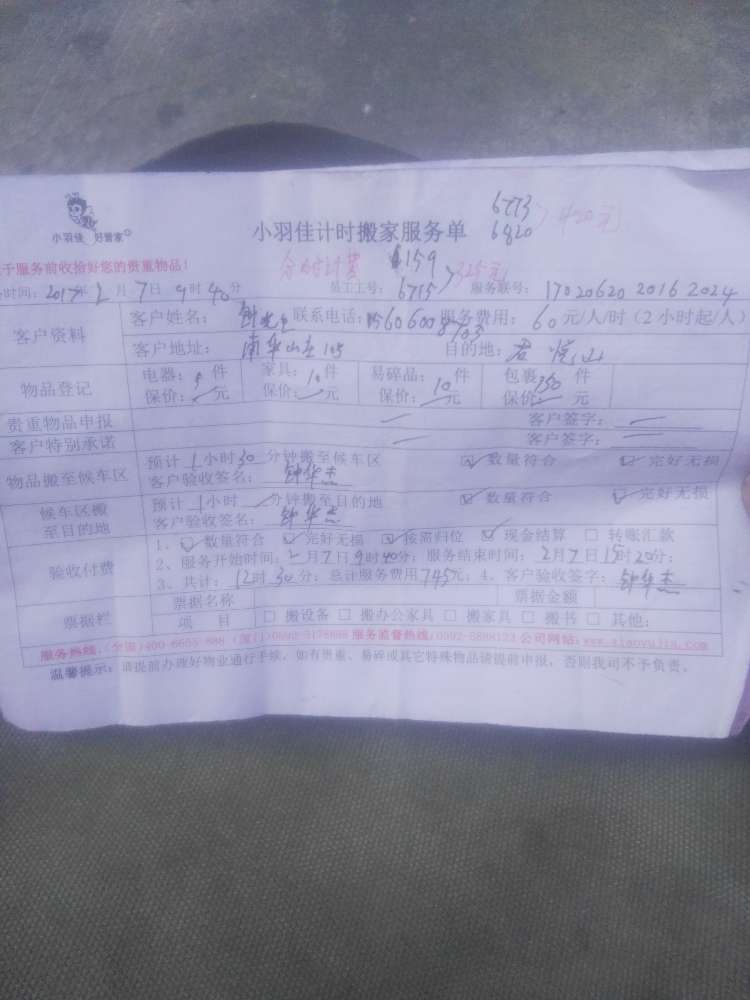 小羽佳 好管家
小羽佳计时搬家服务单
6773
6820
420元
于服务前收拾好您的贵重物品!
分时计费
6159
6715
325元
时间: 2017年2月7日9时40分 员工工号: 服务联号: 17020620 2016 2024
客户资料
客户姓名: 联系电话: 服务费用: 60元/人/时(2小时起/人)
客户地址: 南华山庄105 目的地: 君悦山
物品登记
电器: 5件 家具: 10件 易碎品: 10件 包裹: 件
保价: 元 保价: 元 保价: 元 保价: 元
贵重物品申报 客户签字:
客户特别承诺 客户签字:
物品搬至候车区
预计1小时30分钟搬至候车区 数量符合 完好无损
客户验收签名: 钟华杰
候车区搬至目的地
预计1小时 分钟搬至目的地 数量符合 完好无损
客户验收签名: 钟华杰
验收付费
1、 数量符合 完好无损 按需归位 现金结算 □ 转账汇款
2、服务开始时间: 2月7日9时40分; 服务结束时间: 2月7日 时20分;
3、共计: 12时30分; 总计服务费用745元; 4、客户验收签字: 钟华杰
票据栏
票据名称 票据金额
项 目 □ 搬设备 □ 搬办公家具 □ 搬家具 □ 搬书 □ 其他:
服务热线: (全国)400-6605-888 服务监督热线: 0592-5888123 公司网站: www.xiaoyujia.com
温馨提示: 请提前办理好物业通行手续, 如有贵重、易碎或其它特殊物品请提前申报, 否则我司不予负责。